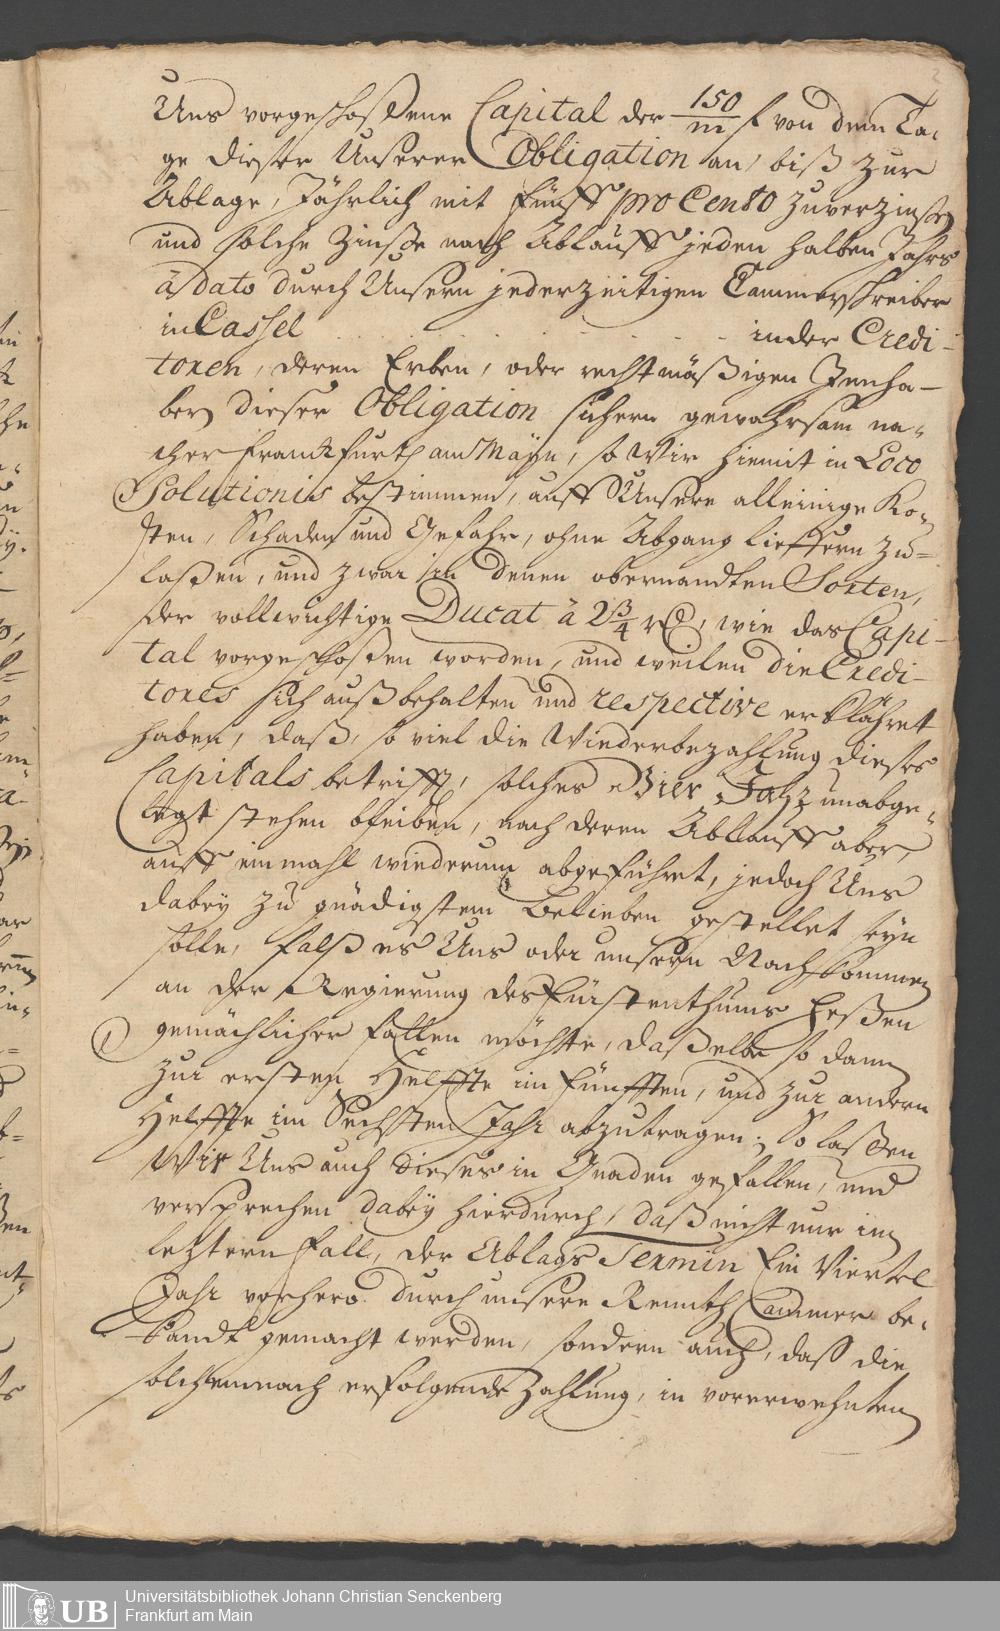 Uns vorgeschoßene Capital der 150/m f von dem Ta-
ge dießer Unserer Obligation an, biß zur
Ablage, Jährlich mit fünff pro Cento zuverzinßen
und solche Zinße nach Ablauff jeden halben Jahrs
à dato durch Unsern jederzeitigen Cammerschreiber
in Cassel in der Credi-
toren, deren Erben, oder rechtmäßigen Innha-
bern dieser Obligation sichern gewahrsam na-
cher Franckfurth am Mayn, so Wir hiemit in Loco
Solutionis bestimmen, auff Unsere alleinige Ko-
sten, Schaden und Gefahr, ohne Abgang lieffern zu-
laßen, und zwar in denen obernandten Sorten,
der vollwichtige Ducat à 2 3/4 rth, wie das Capi-
tal vorgeschoßen worden, und weilen die Credi-
tores sich außbehalten und respective erklähret
haben, daß, so viel die Wiederbezahlung dieses
Capitals betrifft, solches Vier Jahr unabge-
legt stehen bleiben, nach deren Ablauff aber,
auff einmahl wiederum abgeführet, jedoch Uns
dabey zu gnädigstem Belieben gestellet seyn
solle, falß es Uns oder unsern Nachkommen
an der Regierung des Fürstenthums Heßen
gemächlicher fallen möchte, daßelbe so dann
zur ersten Helffte im fünfften, und zur andern
Helffte im Sechsten Jahr abzutragen; So laßen
Wir Uns auch dieses in Gnaden gefallen, und
versprechen dabey hierdurch, daß nicht nur im
letztern Fall, der Ablags Termin Ein Viertel
Jahr vorhero durch unsere Renth Cammer be-
kandt gemacht werden, sondern auch, daß die
solchemnach erfolgende Zahlung, in vorerwehnten
Universitätsbibliothek Johann Christian Senckenberg
Frankfurt am Main
UB